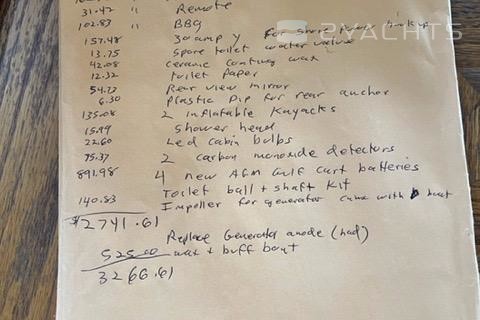 31.42 " Remote
2YACHTS
102.83 " BBQ
157.48 30 amp Y for shore power hookup
13.75 Spare toilet water valve
42.08 ceramic coating wax
12.32 toilet paper
54.73 Rear view mirror
6.30 Plastic Dip for rear anchor
135.08 2 inflatable Kayacks
15.99 shower head
22.60 Led cabin bulbs
75.37 2 carbon monoxide detectors
891.98 4 new AGM Gulf cart batteries
Toilet ball + shaft Kit
140.83 Impeller for generator came with boat
$2741.61
Replace Generator anode (had)
525.00 wax + buff boat
3266.61